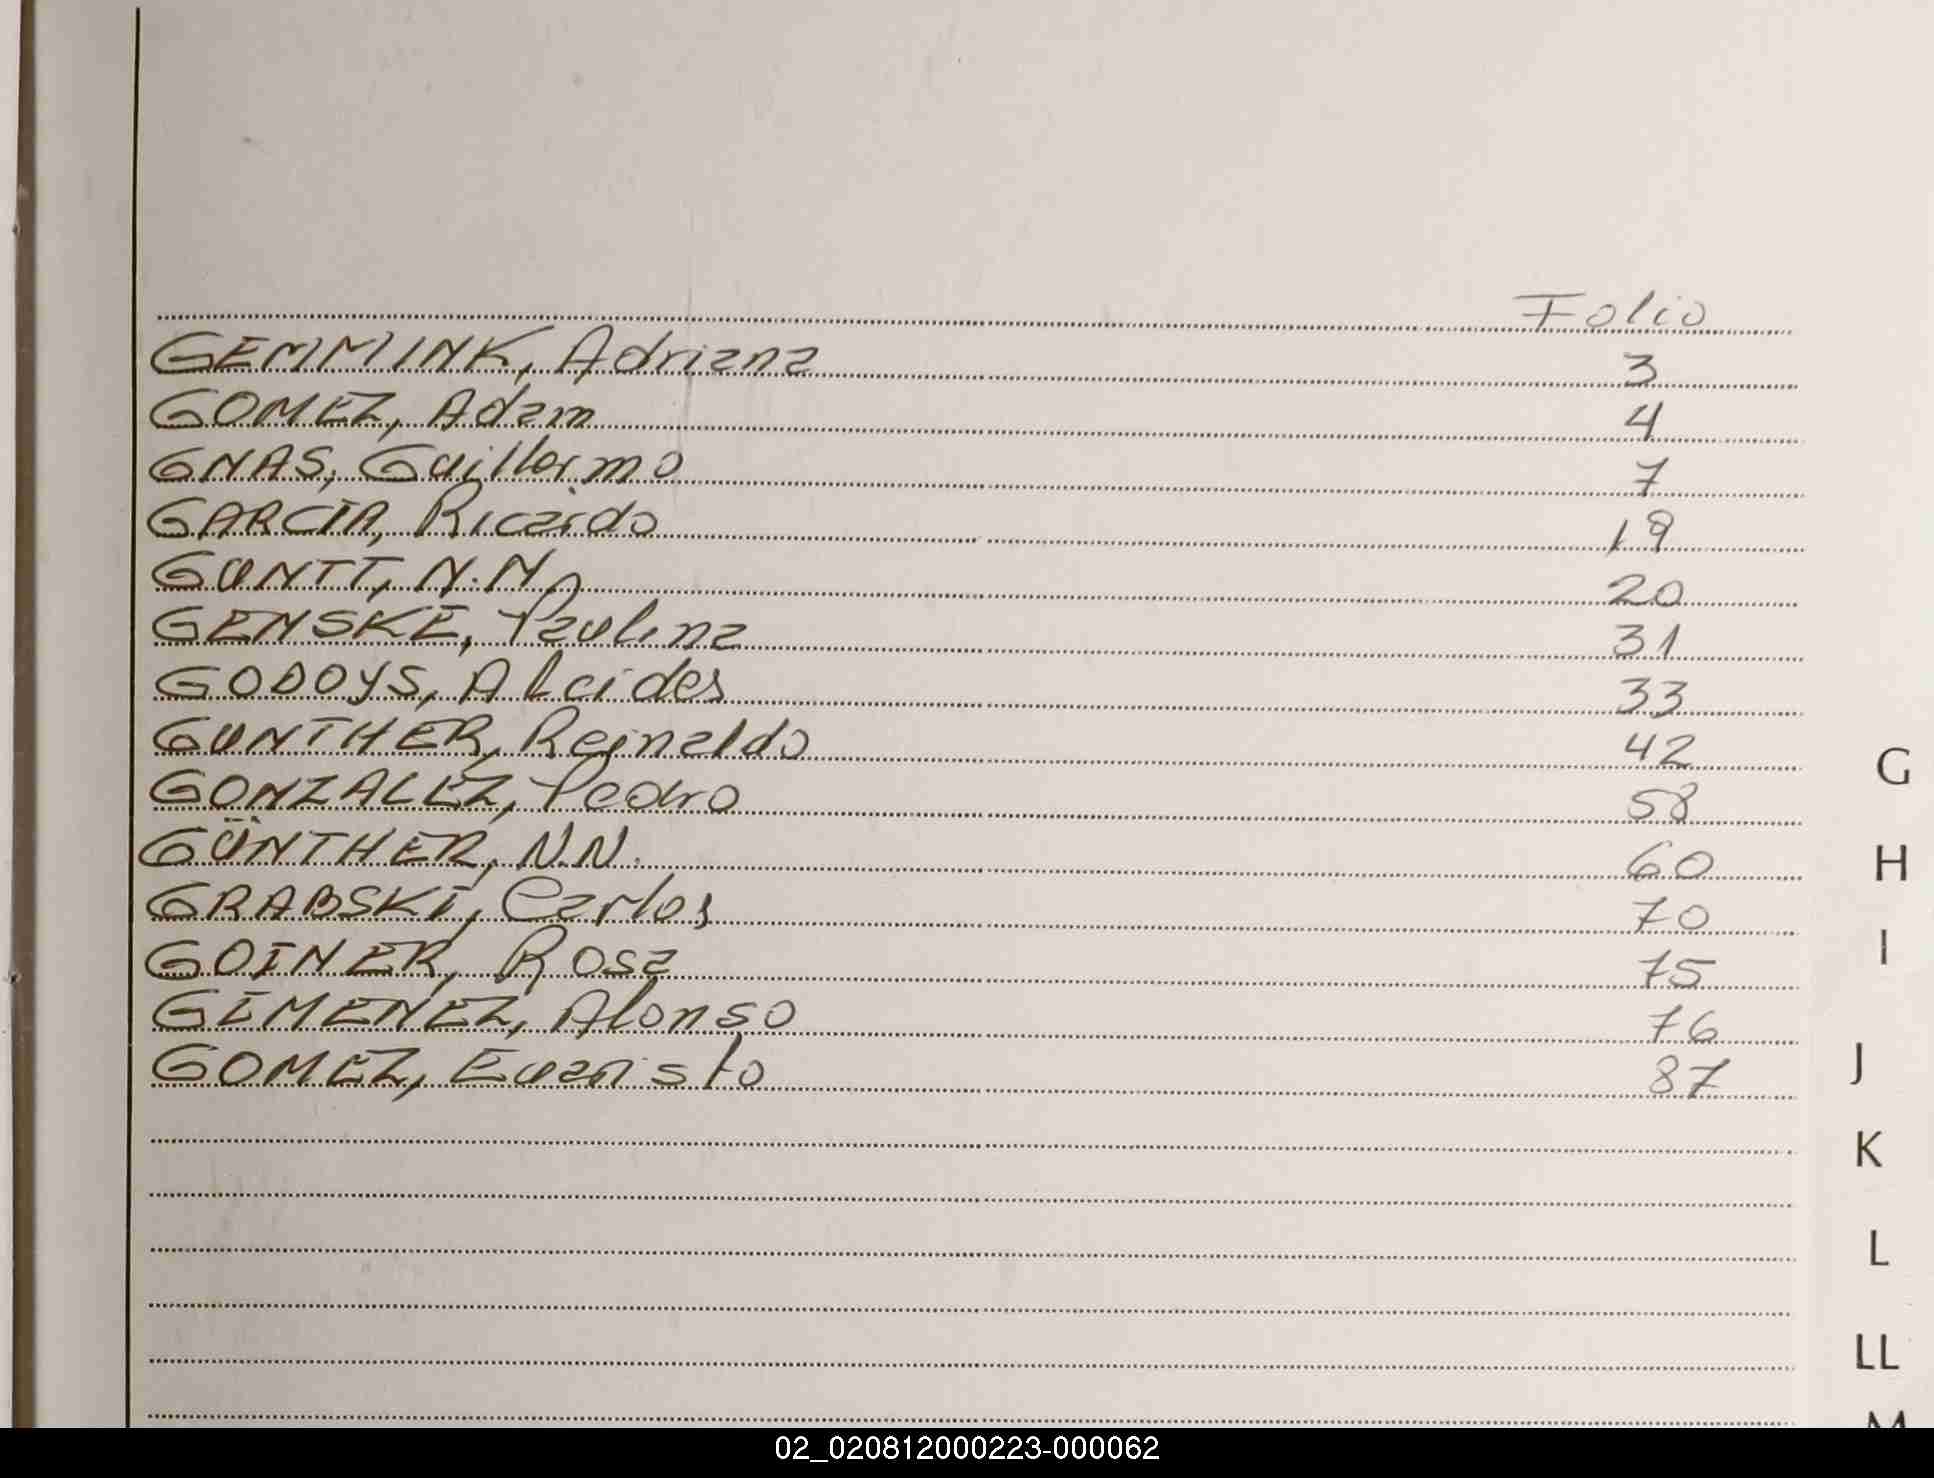 Folio
GEMMINK, Adriana 3
GOMEZ, Adam 4
GNAS, Guillermo 7
GARCIA, Ricardo 19
GUNTT, N.N. 20
GENSKE, Paulina 31
GODOYS, Alcides 33
GUNTHER, Reinaldo 42
GONZALEZ, Pedro 58
GÜNTHER, N.N. 60
GRABSKI, Carlos 70
GOINER, Rosa 75
GIMENEZ, Alonso 76
GOMEZ, Evaristo 87
G
H
I
J
K
L
LL
M
02_020812000223-000062